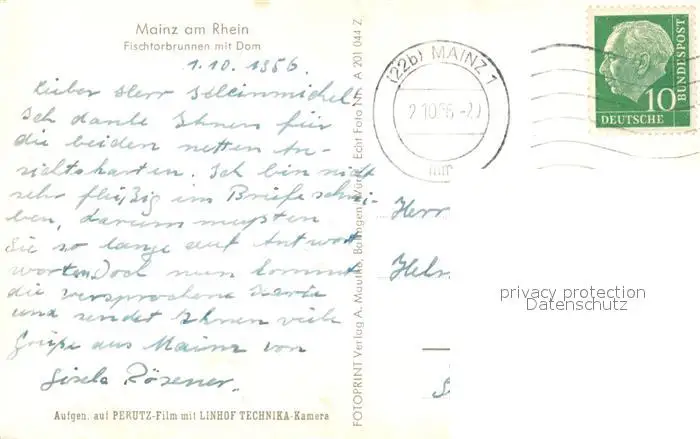 Mainz am Rhein
Fischtorbrunnen mit Dom
1.10.1956.
Lieber Herr Schleinmichel
Ich danke Ihnen für
die beiden netten An-
sichtskarten. Ich bin nicht
sehr fleißig im Briefe schrei-
ben, darum mußten
Sie so lange auf Antwort
warten. Doch nun kommt
die versprochene Karte
und sendet Ihnen viele
Grüße aus Mainz von
Gisela Rösener.
Aufgen. auf PERUTZ-Film mit LINHOF TECHNIKA-Kamera
FOTOPRINT Verlag A. Mauthe, Balingen Würt. Echt Foto Nr. A 201 044 Z
(22b) MAINZ 1
2.10.56.-20
DEUTSCHE
BUNDESPOST
10
Herr
Helm
privacy protection
Datenschutz